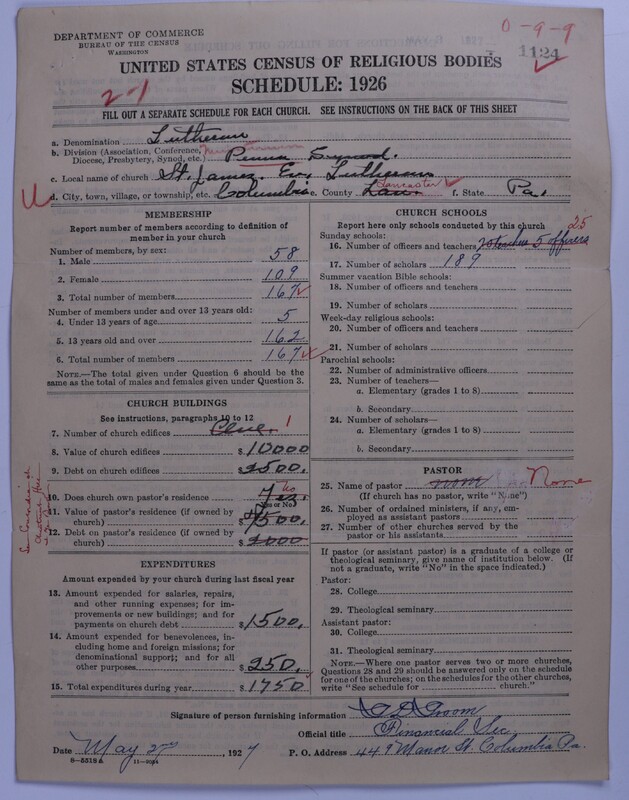 DEPARTMENT OF COMMERCE
BUREAU OF THE CENSUS
WASHINGTON
0-9-9
1124
UNITED STATES CENSUS OF RELIGIOUS BODIES
SCHEDULE: 1926
2-1
FILL OUT A SEPARATE SCHEDULE FOR EACH CHURCH. SEE INSTRUCTIONS ON THE BACK OF THIS SHEET
a. Denomination Lutheran
b. Division (Association, Conference, Diocese, Presbytery, Synod, etc.) Penna Synod.
c. Local name of church St. James Ev. Lutheran
d. City, town, village, or township, etc. Columbia e. County Lan. Lancaster f. State Pa.
MEMBERSHIP
Report number of members according to definition of
member in your church
Number of members, by sex:
1. Male 58
2. Female 109
3. Total number of members 167
Number of members under and over 13 years old:
4. Under 13 years of age 5
5. 13 years old and over 162
6. Total number of members 167
NOTE.—The total given under Question 6 should be
the same as the total of males and females given under Question 3.
CHURCH BUILDINGS
See instructions, paragraphs 10 to 12
7. Number of church edifices One. 1
8. Value of church edifices $10000
9. Debt on church edifices $2500.
10. Does church own pastor's residence Yes. no
(Yes or No)
11. Value of pastor's residence (if owned by
church) $7500.
12. Debt on pastor's residence (if owned by
church) $2000
EXPENDITURES
Amount expended by your church during last fiscal year
13. Amount expended for salaries, repairs,
and other running expenses; for im-
provements or new buildings; and for
payments on church debt $1500.
14. Amount expended for benevolences, in-
cluding home and foreign missions; for
denominational support; and for all
other purposes $250.
15. Total expenditures during year $1750
CHURCH SCHOOLS
Report here only schools conducted by this church
Sunday schools:
25
16. Number of officers and teachers 20 teachers 5 officers
17. Number of scholars 189
Summer vacation Bible schools:
18. Number of officers and teachers
19. Number of scholars
Week-day religious schools:
20. Number of officers and teachers
21. Number of scholars
Parochial schools:
22. Number of administrative officers
23. Number of teachers—
a. Elementary (grades 1 to 8)
b. Secondary
24. Number of scholars—
a. Elementary (grades 1 to 8)
b. Secondary
PASTOR
25. Name of pastor none None
(If church has no pastor, write "None")
26. Number of ordained ministers, if any, em-
ployed as assistant pastors
27. Number of other churches served by the
pastor or his assistants
If pastor (or assistant pastor) is a graduate of a college or
theological seminary, give name of institution below. (If
not a graduate, write "No" in the space indicated.)
Pastor:
28. College
29. Theological seminary
Assistant pastor:
30. College
31. Theological seminary
NOTE.—Where one pastor serves two or more churches,
Questions 28 and 29 should be answered only on the schedule
for one of the churches; on the schedules for the other churches,
write "See schedule for church."
Signature of person furnishing information Groom
Official title Financial Sec.
Date May 27th, 1927 P. O. Address 449 Manor St. Columbia Pa.
8-5518a 11-9024